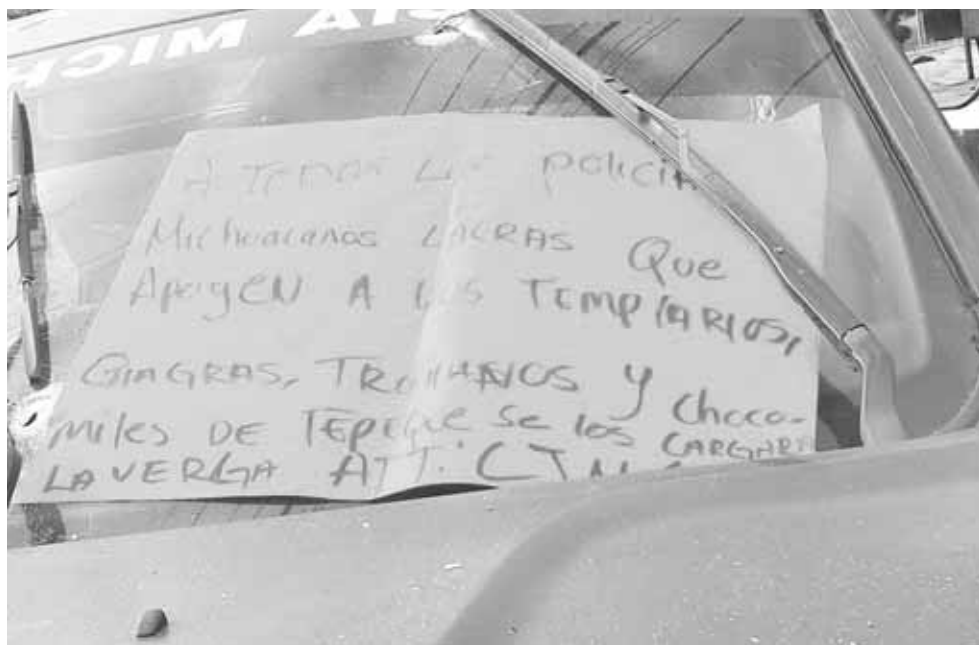 CIA MICH
A TODOS LOS POLICIA
Michuacanos LACRAS Que
ApoyEN A LOS TEMPlARIOS,
GIAGRAS, TROYANOS y choco-
miles DE TEPEQUE Se los CARGARA
LA VERGA ATT: CJN